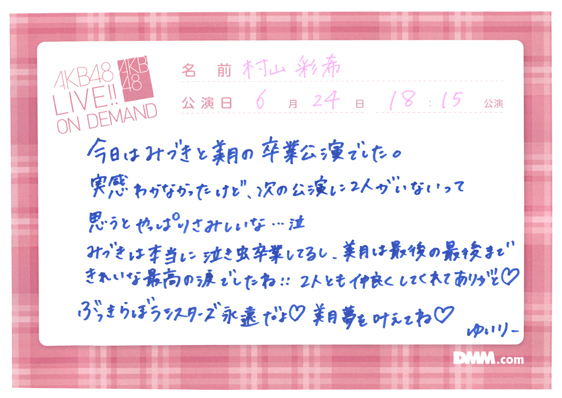 AKB48
LIVE!!
ON DEMAND
AKB
48
名前 村山彩希
公演日 6月24日 18:15公演
今日はみづきと美月の卒業公演でした。
実感わかなかったけど、次の公演に2人がいないって
思うとやっぱりさみしいな…泣
みづきは本当に泣き虫卒業してるし、美月は最後の最後まで
きれいな最高の涙でしたね!! 2人とも仲良くしてくれてありがと♡
ぶっきらぼうシスターズ永遠だよ♡ 美月夢を叶えてね♡
ゆいりー
DMM.com